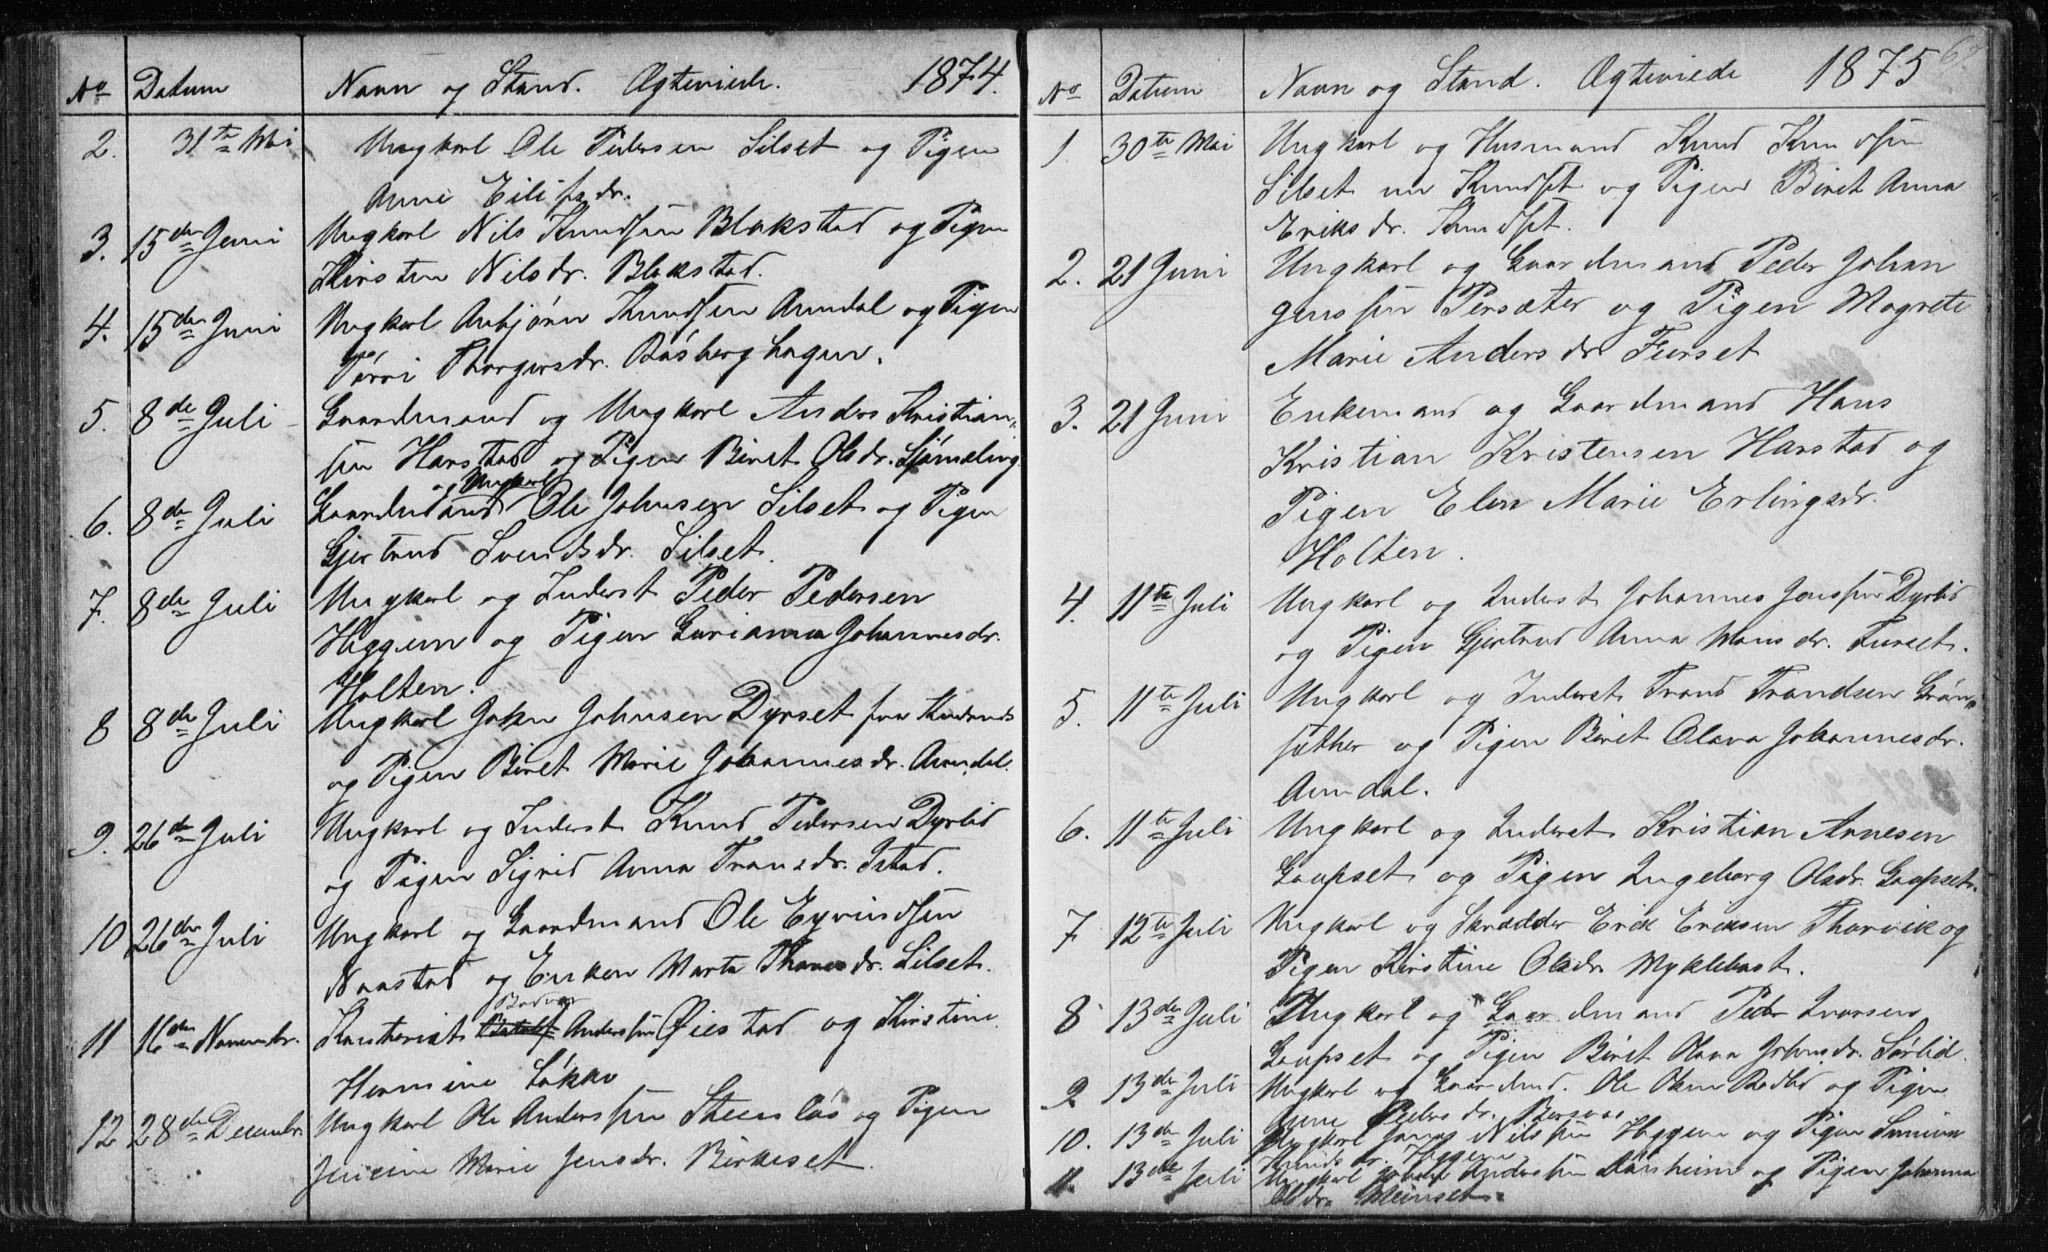 No Datum Navn og Stand. Ægteviede. 1874.
2. 31te Mai Ungkarl Ole Pedersen Silset og Pigen
Anne Eilifsdr.
3. 15de Juni Ungkarl Nils Knudsen Blakstad og Pigen
Kirsten Nilsdr. Blakstad.
4. 15de Juni Ungkarl Anbjørn Knudsen Aundal og Pigen
Thorgersdr. Båsberghagen.
5. 8de Juli Gaardmand og Ungkarl Anders Kristian-
sen Harstad og Pigen Beret Olsdr.
og Ungkarl
6. 8de Juli Gaardmand Ole Johnsen Silset og Pigen
Gjertrud Svendsdr. Silset.
7. 8de Juli Ungkarl og Inderst Peder Pedersen
Heggem og Pigen Gurianna Johannesdr.
Holten.
8 8de Juli Ungkarl John Johnsen Dyrset fra
og Pigen Beret Marie Johannesdr. Aundal.
9. 26de Juli Ungkarl og Inderst Knud Pedersen Dyrlid
og Pigen Sigrid Anna Transdr. Istad.
10 26de Juli Ungkarl og Gaardmand Ole Eyvindsen
Naastad og Enken Marta Silset.
11 16de Novembr. Andersen Øiestad og Kirstine
Hermine Løkke
12 28de Decembr. Ungkarl Ole Andersen Steenløs og Pigen
Marie Jensdr. Birkeset.
No Datum Navn og Stand. Ægteviede 1875
1. 30te Mai Ungkarl og Husmand Knud Knudsen
Silset Knudset og Pigen Beret Anna
Eriksdr. Knudset.
2. 21 Juni Ungkarl og Gaardmand Peder Johan
Jenssen Persæter og Pigen Magrete
Marie Andersdr Furset
3. 21 Juni Enkemand og Gaardmand Hans
Kristian Kristensen Harstad og
Pigen Elen Marie Erlingsdr.
Holten.
4. 11te Juli Ungkarl og Inderst Johannes Jenssen Dyrlid
og Pigen Gjertrud Anna Monsdr. Furset.
5. 11te Juli Ungkarl og Inderst Trond Trondsen Grøn-
sæther og Pigen Beret Olava Johannesdr.
Aundal.
6. 11te Juli Ungkarl og Inderst Kristian Arnesen
Gaupset og Pigen Ingeborg Olsdr. Gaupset.
7 12te Juli Ungkarl og Skrædder Erik Eriksen Thorvik og
Pigen Kirstine Olsdr Myklebust.
8 13de Juli Ungkarl og Gaardmand Peder Ivarsen
Gaupset og Pigen Beret Olava Johnsdr. Sørlid.
9. 13de Juli Ungkarl og Gaardmd. Ole Olsen Bødlid og Pigen
Pedersdr.
10. 13de Juli Ungkarl Nilssen Heggem og Pigen
Knudsdr. Heggem
11. 13de Juli Ungkarl Anderssen og Pigen Johanna
Olsdr.